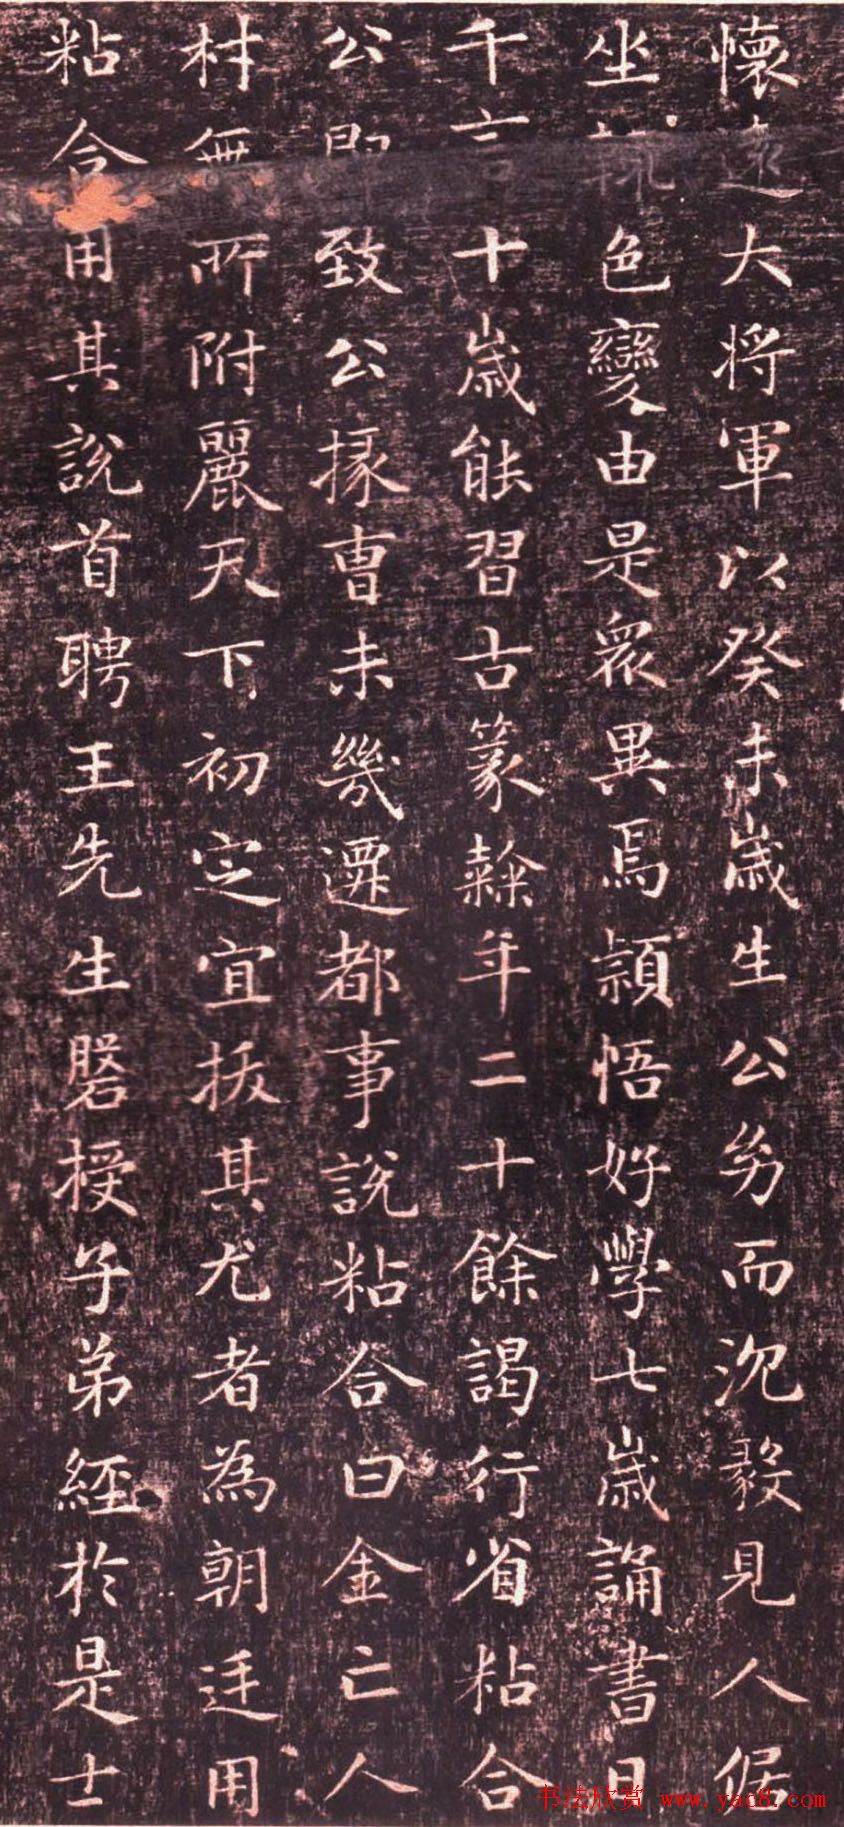 懷遠大將軍以癸未歲生公幼而沉毅見人倨
坐輒色變由是衆異焉穎悟好學七歲誦書日
千言十歲能習古篆隸年二十餘謁行省粘合
公即致公掾曹未幾遷都事說粘合曰金亡人
材無所附麗天下初定宜拔其尤者為朝廷用
粘合用其說首聘王先生磐授子弟經於是士
书法欣赏 www.yac8.com